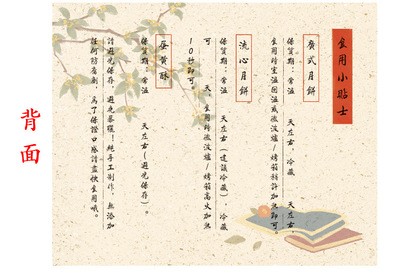 背面
食用小貼士
廣式月餅
保質期：常溫　　天左右，冷藏　　天左右，
食用時室溫回溫或微波爐/烤箱稍許加熱即可。
流心月餅
保質期：常溫　　天左右（建議冷藏），冷藏
可　　天，食用時微波爐/烤箱高火加熱
10秒即可。
蛋黃酥
保質期：常溫　　天左右（避光保存）。
請避光保存，避免暴曬！純手工制作，無添加
任何防腐劑，為了保證口感請盡快食用哦。